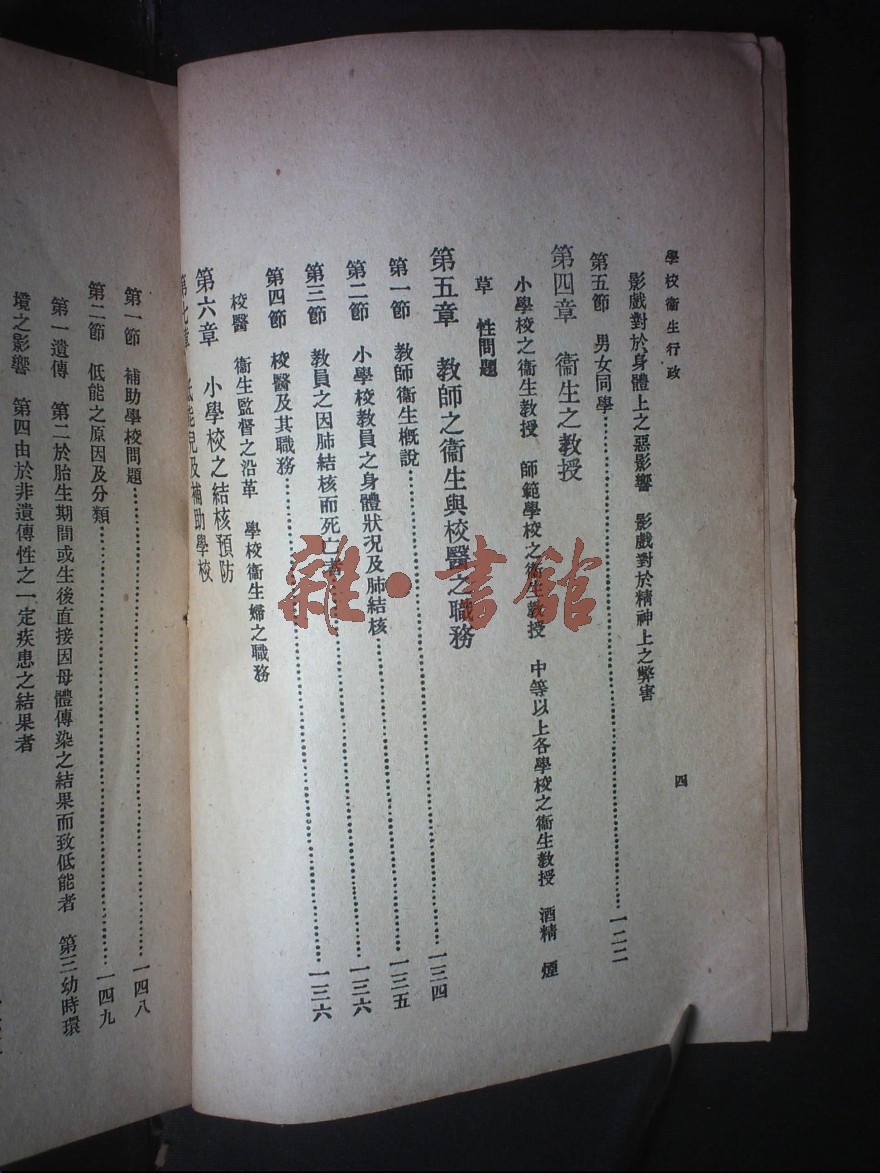 學校衞生行政
四
影戲對於身體上之惡影響　影戲對於精神上之弊害
第五節　男女同學…………一二二
第四章　衞生之教授
小學校之衞生教授　師範學校之衞生教授　中等以上各學校之衞生教授　酒精　煙
草　性問題
第五章　教師之衞生與校醫之職務
第一節　教師衞生概說…………一三四
第二節　小學校教員之身體狀況及肺結核…………一三五
第三節　教員之因肺結核而死亡者…………一三六
第四節　校醫及其職務…………一三六
校醫　衞生監督之沿革　學校衞生婦之職務
第六章　小學校之結核預防
第七章　低能兒及補助學校
第一節　補助學校問題…………一四八
第二節　低能之原因及分類…………一四九
第一遺傳　第二於胎生期間或生後直接因母體傳染之結果而致低能者　第三幼時環
境之影響　第四由於非遺傳性之一定疾患之結果者
雜·書館